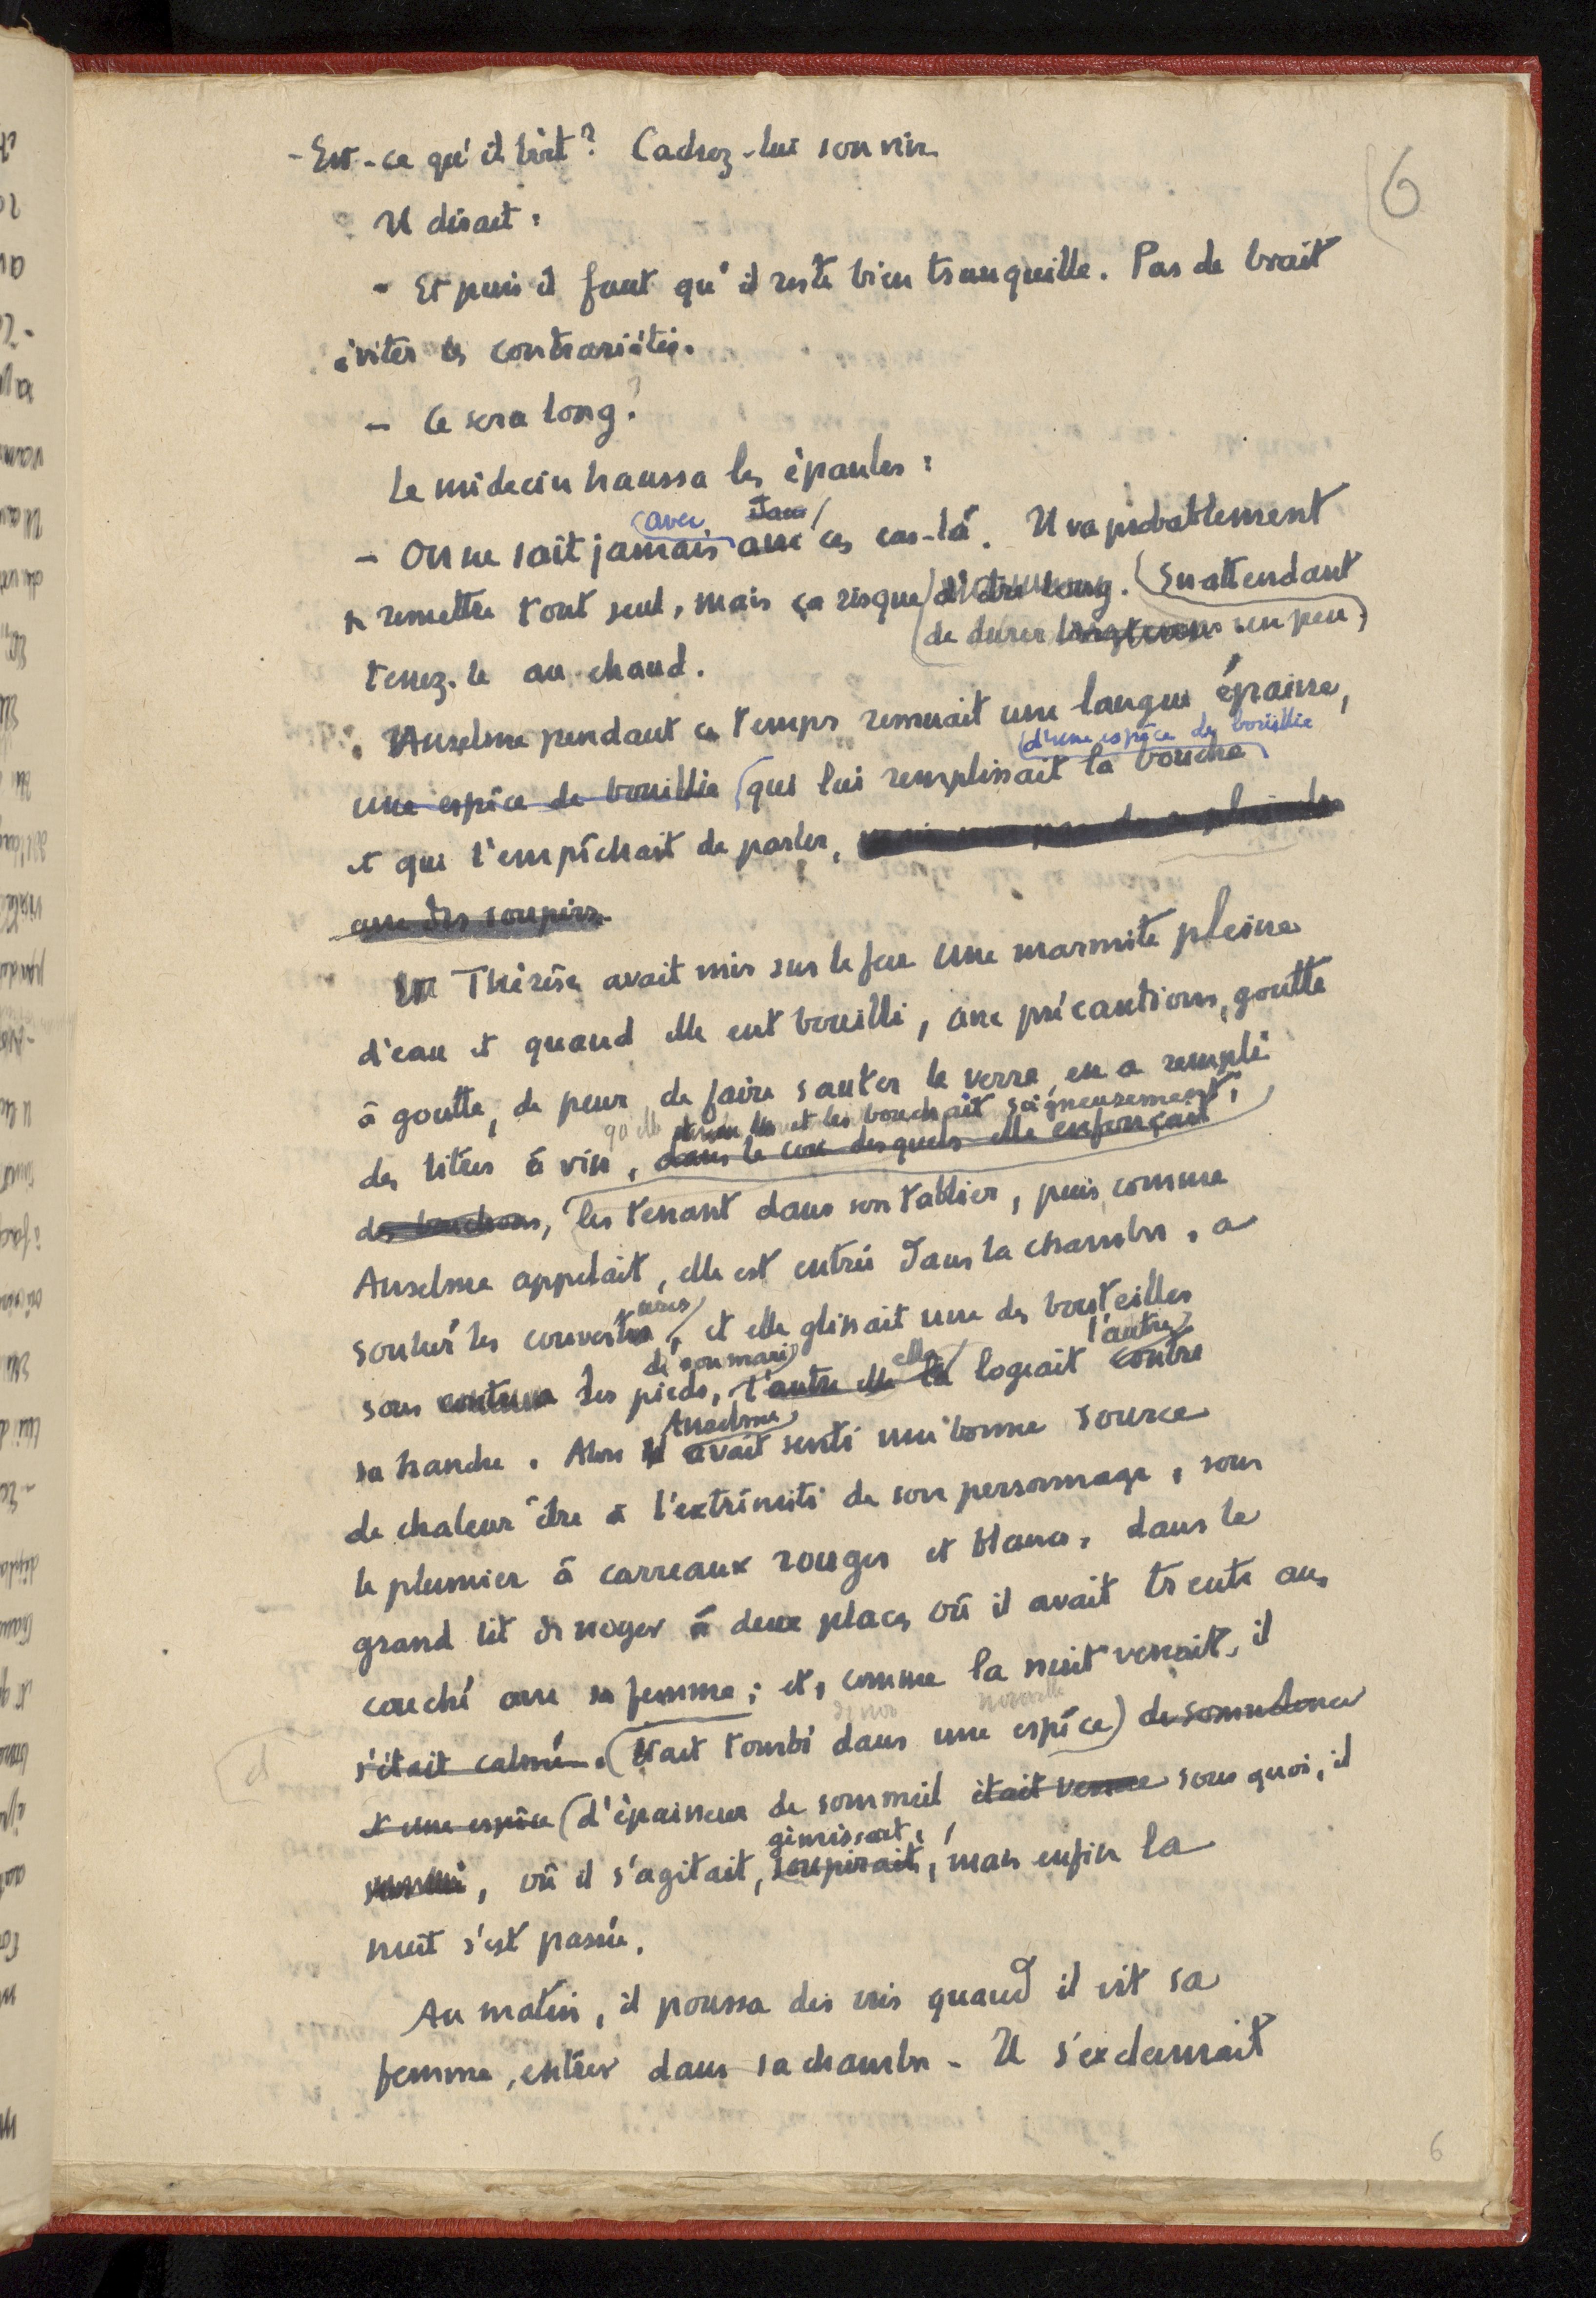 6
- Est-ce qu'il boit? Cachez-lui son vin.
Il disait:
- Et puis il faut qu'il reste bien tranquille. Pas de bruit
éviter les contrariétés.
- Ce sera long?
Le médecin haussa les épaules:
(avec dans
- On ne sait jamais avec ces cas-là. Il va probablement
se remettre tout seul, mais ça risque d'être long. (En attendant
(de durer longtemps un peu,
tenez-le au chaud.
Anselme pendant ce temps remuait une langue épaisse,
(d'une espèce de bouillie
une espèce de bouillie (qui lui remplissait la bouche
et qui l'empêchait de parler,
avec des soupirs.
Thérèse avait mis sur le feu une marmite pleine
d'eau et quand elle eut bouilli, avec précautions, goutte
à goutte, de peur de faire sauter le verre, en a rempli
qu'elle et les bouchait soigneusement,
des litres à vin, dans le cou desquels elle enfonçait
des bouchons, les tenant dans son tablier, puis comme
Anselme appelait, elle est entrée dans la chambre, a
soulevé les couvertures, et elle glissait une des bouteilles
de son mari elle l'autre
sous les pieds, l'autre elle la logeait contre
Anselme
sa hanche. Alors il avait senti une bonne source
de chaleur être à l'extrémité de son personnage, sous
le plumier à carreaux rouges et blancs, dans le
grand lit de noyer à deux places où il avait trente ans
couché avec sa femme; et, comme la nuit venait, il
nouvelle
s'était calmé. (Etait tombé dans une espèce) de somnolence
et une espèce (d'épaisseur de sommeil était venue sous quoi, il
gémissait,
, où il s'agitait, soupirait, mais enfin la
nuit s'est passée.
Au matin, il poussa des cris quand il vit sa
femme, entrer dans sa chambre - Il s'exclamait
6